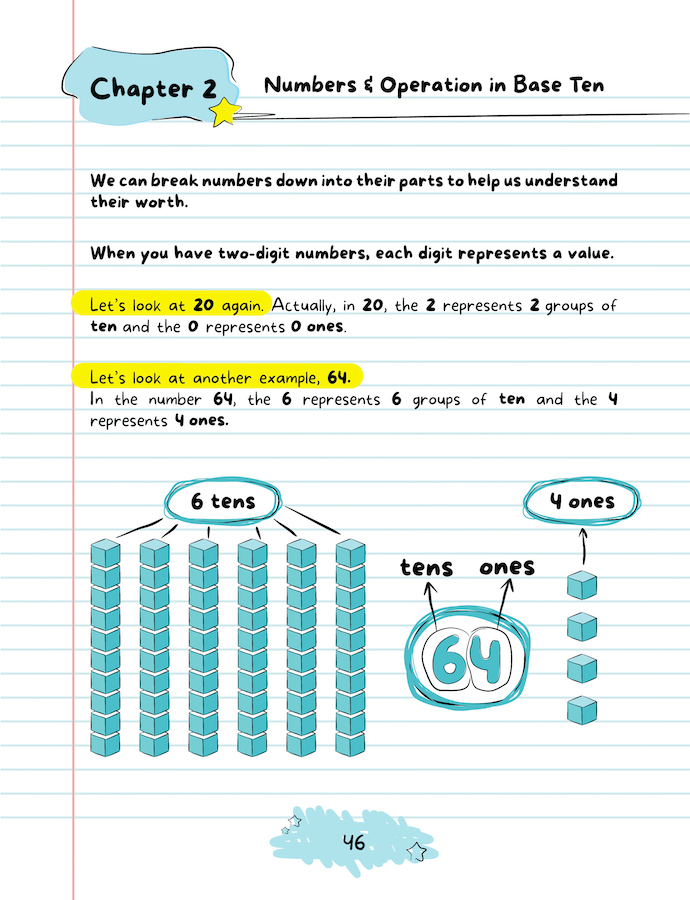 Chapter 2
Numbers & Operation in Base Ten
We can break numbers down into their parts to help us understand
their worth.
When you have two-digit numbers, each digit represents a value.
Let's look at 20 again. Actually, in 20, the 2 represents 2 groups of
ten and the 0 represents 0 ones.
Let's look at another example, 64.
In the number 64, the 6 represents 6 groups of ten and the 4
represents 4 ones.
6 tens
4 ones
tens ones
64
46